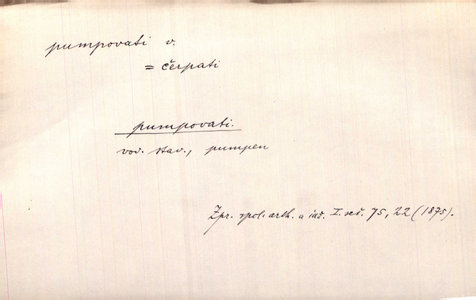 pumpovati v.
= čerpati
pumpovati.
vod. stav., pumpen
Zpr. spol. arch. a inž. I. seš. 75, 22 (1875).